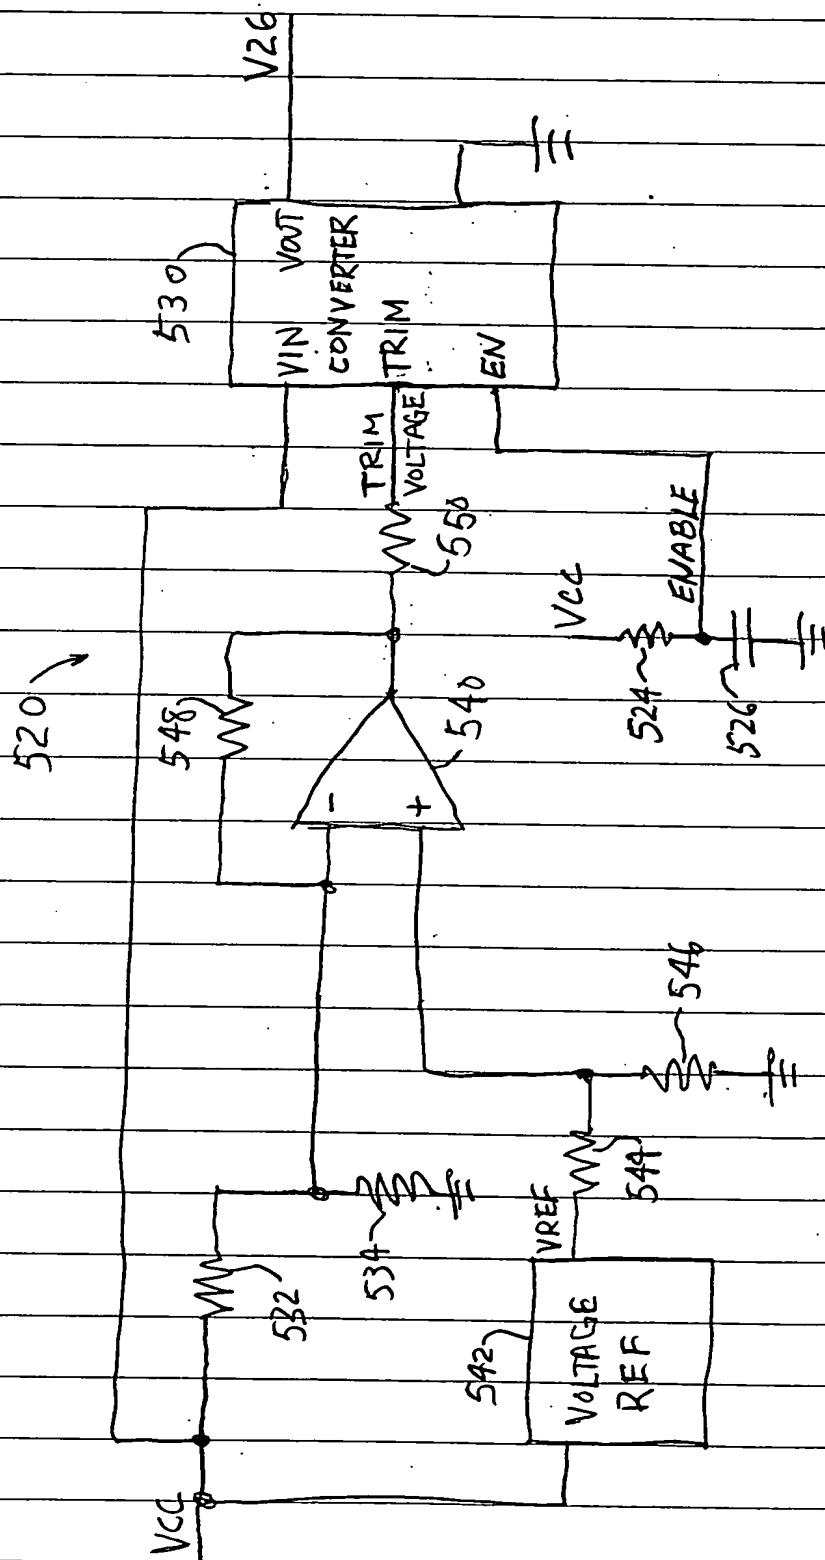 520
VCC
532
534
542
VOLTAGE
REF
VREF
544
546
548
-
+
540
550
TRIM
VOLTAGE
VCC
524
526
ENABLE
530
VIN
VOUT
CONVERTER
TRIM
EN
V26